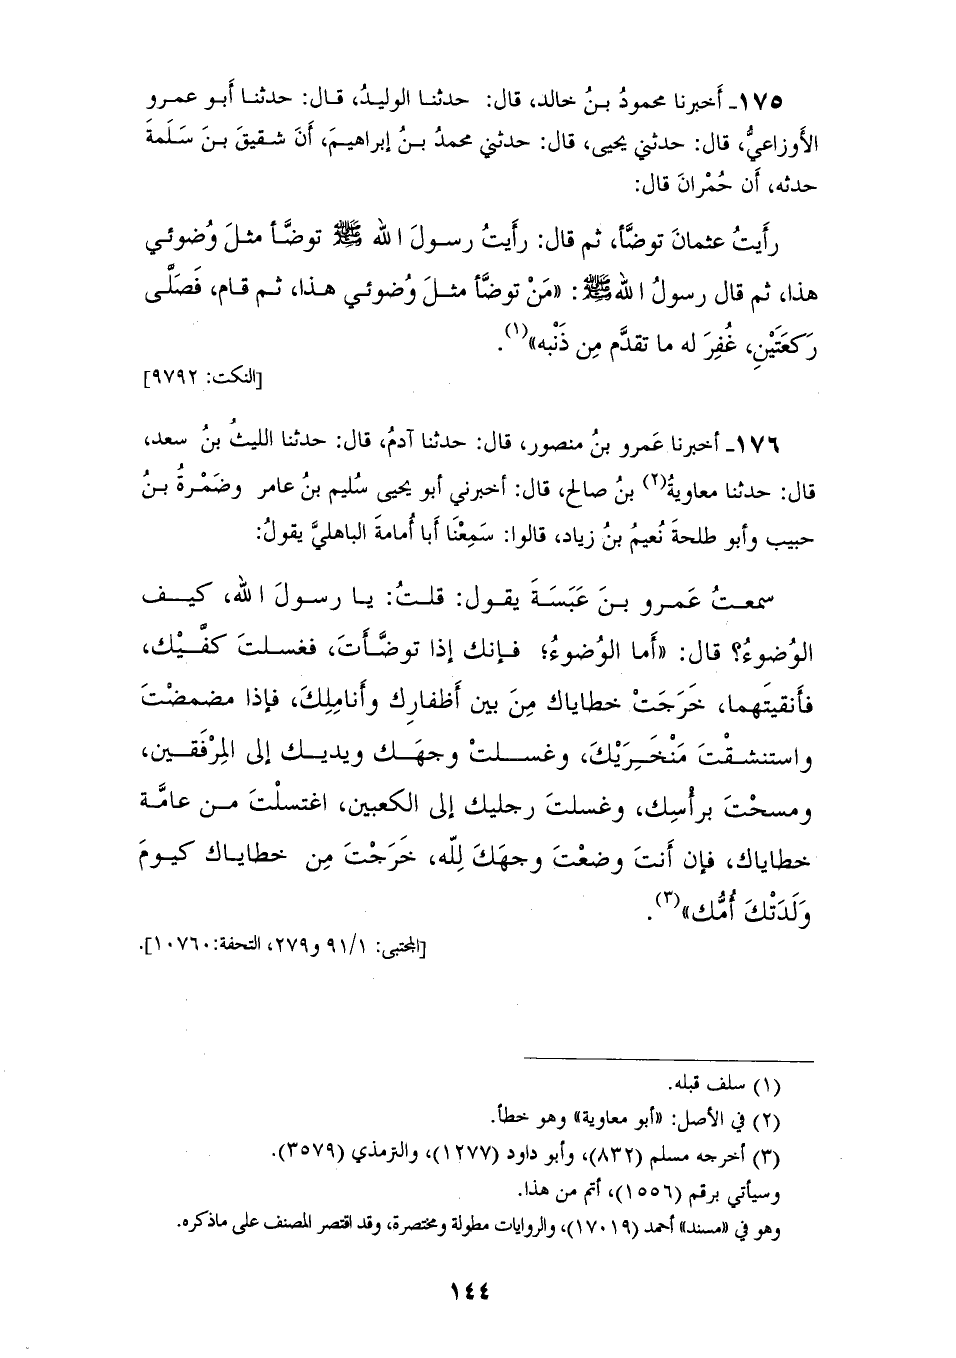 ١٧٥ـ أخبرنا محمودُ بنُ خالد، قال: حدثنا الوليدُ، قال: حدثنا أَبو عمرو
الأَوزاعيُّ، قال: حدثني يحيى، قال: حدثني محمدُ بنُ إبراهيمَ، أَنَ شقيقَ بنَ سَلَمةَ
حدثه، أَن حُمْرانَ قال:
رأَيتُ عثمانَ توضَّأَ، ثم قال: رأَيتُ رسولَ الله ﷺ توضَّأَ مثلَ وُضوئي
هذا، ثم قال رسولُ اللهِ ﷺ: «مَنْ توضَّأَ مثلَ وُضوئي هذا، ثم قام، فَصَلَّى
رَكعَتَيْنِ، غُفِرَ له ما تقدَّم مِن ذَنْبِه»(١).
[النكت: ٩٧٩٢]
١٧٦ـ أخبرنا عَمرو بنُ منصور، قال: حدثنا آدمُ، قال: حدثنا الليثُ بنُ سعد،
قال: حدثنا معاويةُ(٢) بنُ صالح، قال: أخبرني أبو يحيى سُليم بنُ عامر وضَمْرةُ بنُ
حبيب وأبو طلحةَ نُعيمُ بنُ زياد، قالوا: سَمِعْنَا أبا أُمامةَ الباهليَّ يقولُ:
سمعتُ عَمرو بنَ عَبَسَةَ يقول: قلتُ: يا رسولَ الله، كيف
الوُضوءُ؟ قال: «أَما الوُضوءُ؛ فإنك إذا توضَّأتَ، فغسلتَ كفَّيْك،
فأَنقيتَهما، خَرَجَتْ خطاياك مِنَ بين أَظفارِك وأَنامِلِكَ، فإذا مضمضْتَ
واستنشقْتَ مَنْخَرِيْكَ، وغسلتْ وجهَك ويديك إلى المِرْفَقَين،
ومسحْتَ برأْسِك، وغسلتَ رجليك إلى الكعبين، اغتسلْتَ من عامَّة
خطاياك، فإن أَنتَ وضعْتَ وجهَكَ لِلَّه، خَرَجْتَ مِن خطاياك كيومَ
وَلَدَتْكَ أُمُّك»(٣).
[المجتبى: ٩١/١ و٢٧٩، التحفة: ١٠٧٦٠].
(١) سلف قبله.
(٢) في الأصل: «أبو معاوية» وهو خطأ.
(٣) أخرجه مسلم (٨٣٢)، وأبو داود (١٢٧٧)، والترمذي (٣٥٧٩).
وسيأتي برقم (١٥٥٦)، أتم من هذا.
وهو في «مسند» أحمد (١٧٠١٩)، والروايات مطولة ومختصرة، وقد اقتصر المصنف على ماذكره.
١٤٤